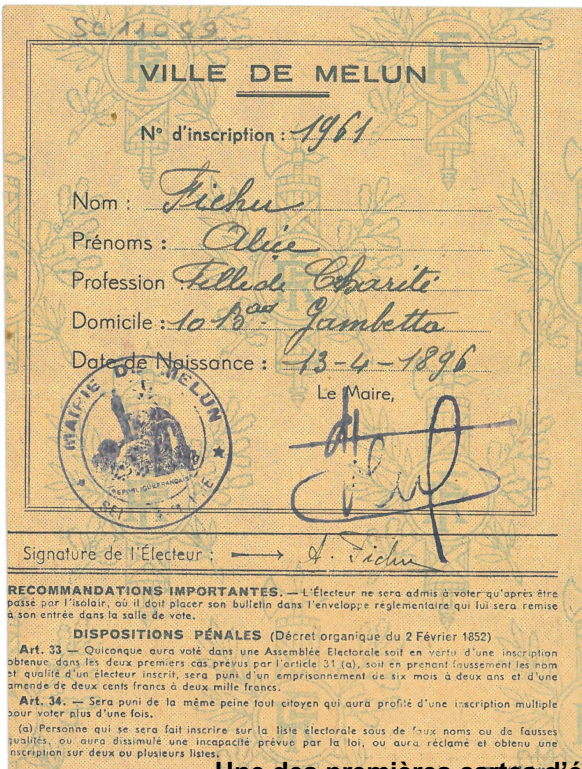 SC 11059
VILLE DE MELUN
N° d'inscription : 1961
Nom : Fichu
Prénoms : Alice
Profession Fille de Charité
Domicile : 10 Bd Gambetta
Date de Naissance : 13-4-1896
Le Maire,
MAIRIE DE MELUN
REPUBLIQUE FRANÇAISE
Signature de l'Électeur : → A. Fichu
RECOMMANDATIONS IMPORTANTES. — L'Électeur ne sera admis à voter qu'après être
passé par l'isoloir, où il doit placer son bulletin dans l'enveloppe réglementaire qui lui sera remise
à son entrée dans la salle de vote.
DISPOSITIONS PÉNALES (Décret organique du 2 Février 1852)
Art. 33 — Quiconque aura voté dans une Assemblée Electorale soit en vertu d'une inscription
obtenue dans les deux premiers cas prévus par l'article 31 (a), soit en prenant faussement les nom
et qualité d'un électeur inscrit, sera puni d'un emprisonnement de six mois à deux ans et d'une
amende de deux cents francs à deux mille francs.
Art. 34. — Sera puni de la même peine tout citoyen qui aura profité d'une inscription multiple
pour voter plus d'une fois.
(a) Personne qui se sera fait inscrire sur la liste électorale sous de faux noms ou de fausses
qualités, ou aura dissimulé une incapacité prévue par la loi, ou aura réclamé et obtenu une
inscription sur deux ou plusieurs listes.
Une des premières cartes d'é